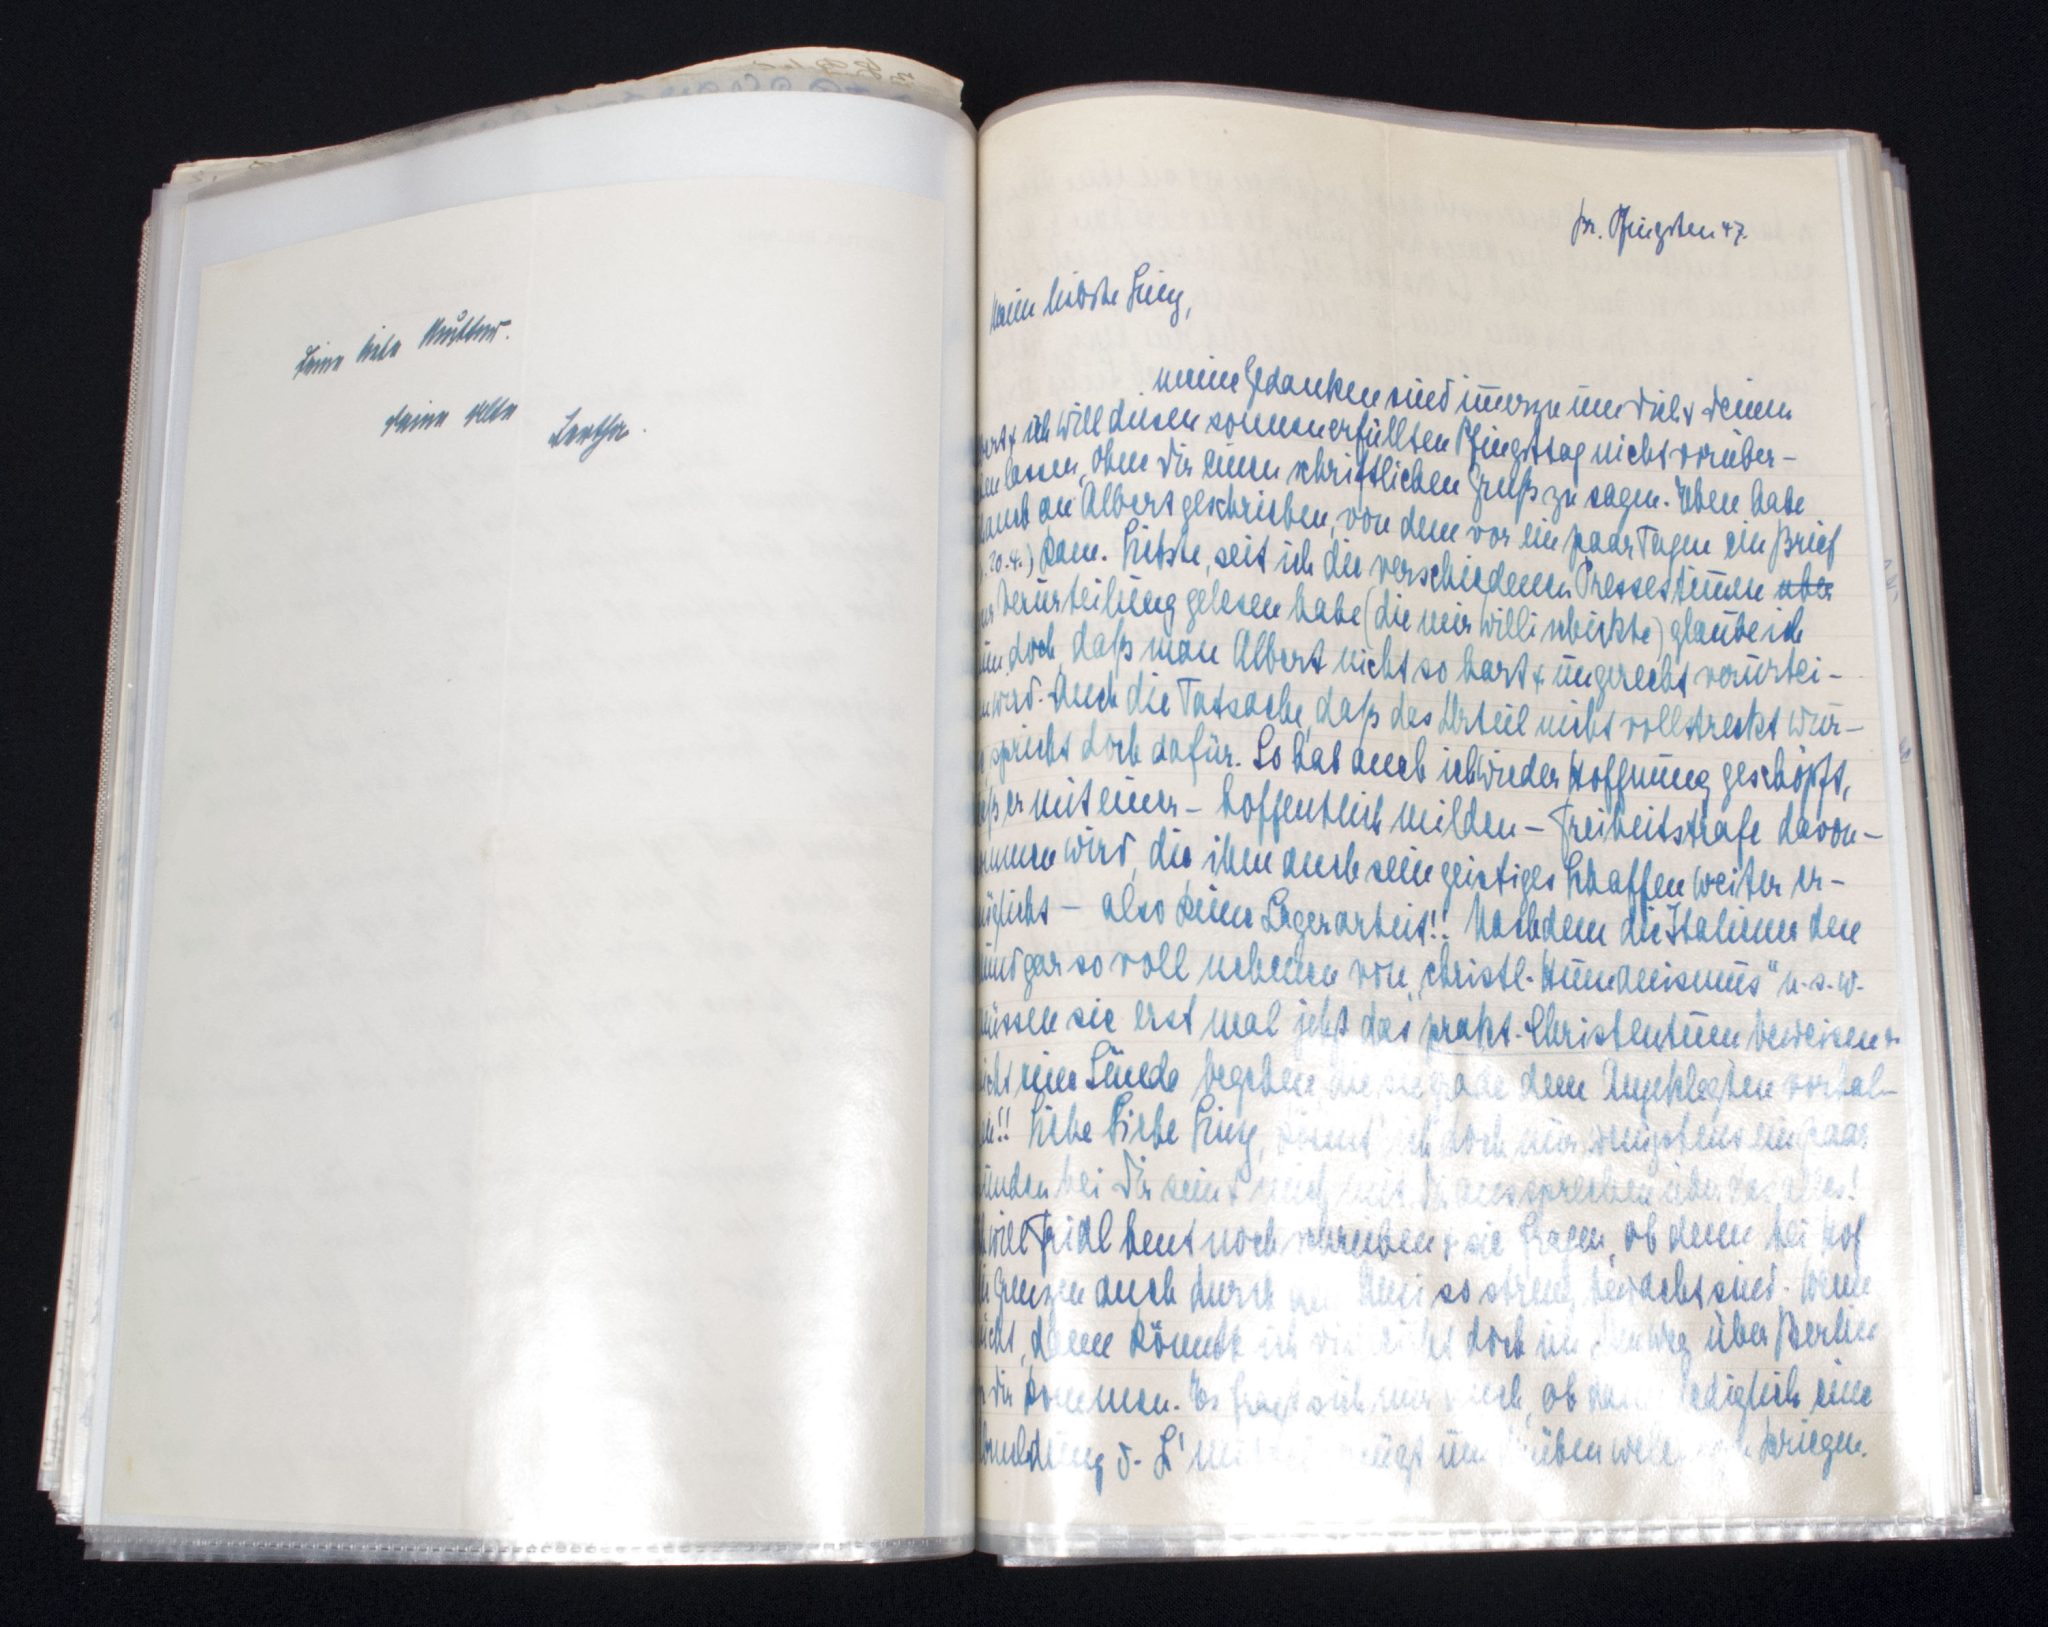 Deine liebe Mutter.
deine alte
Br. Pfingsten 47.
Meine liebste Liny,
meine Gedanken sind immerzu um dich & deinen
& ich will diesen sonnenerfüllten Pfingsttag nicht vorüber-
lassen, ohne dir einen schriftlichen Gruß zu sagen. Eben habe
auch an Albert geschrieben, von dem vor ein paar Tagen ein Brief
20.4.) kam. Liebste, seit ich die verschiedenen Pressestimmen über
Verurteilung gelesen habe (die mir Willi schickte) glaube ich
doch, daß man Albert nicht so hart & ungerecht verurtei-
wird. Auch die Tatsache, daß das Urteil nicht vollstreckt wur-
spricht doch dafür. So hab auch ich wieder Hoffnung geschöpft,
er mit einer - hoffentlich milden - Freiheitstrafe davon-
wird, die ihm auch sein geistiges Schaffen weiter er-
- also keine Lagerarbeit!! Nachdem die Italiener den
gar so voll nehmen von „christl. Humanismus" u.s.w.
müssen sie erst mal jetzt das prakt. Christentum beweisen &
eine Sünde begehen, die sie grade dem Angeklagten vorhal-
Liebe liebe Liny, könnt' ich doch nur wenigstens ein paar
bei dir sein & mich mit dir aussprechen über das alles!
will Fridl heut noch schreiben & sie fragen, ob denn bei Hof
Grenzen auch durch so streng bewacht sind. Wenn
dann könnte ich vielleicht doch über Berlin
dir kommen. Es fragt sich nur noch, ob lediglich eine
kriegen.